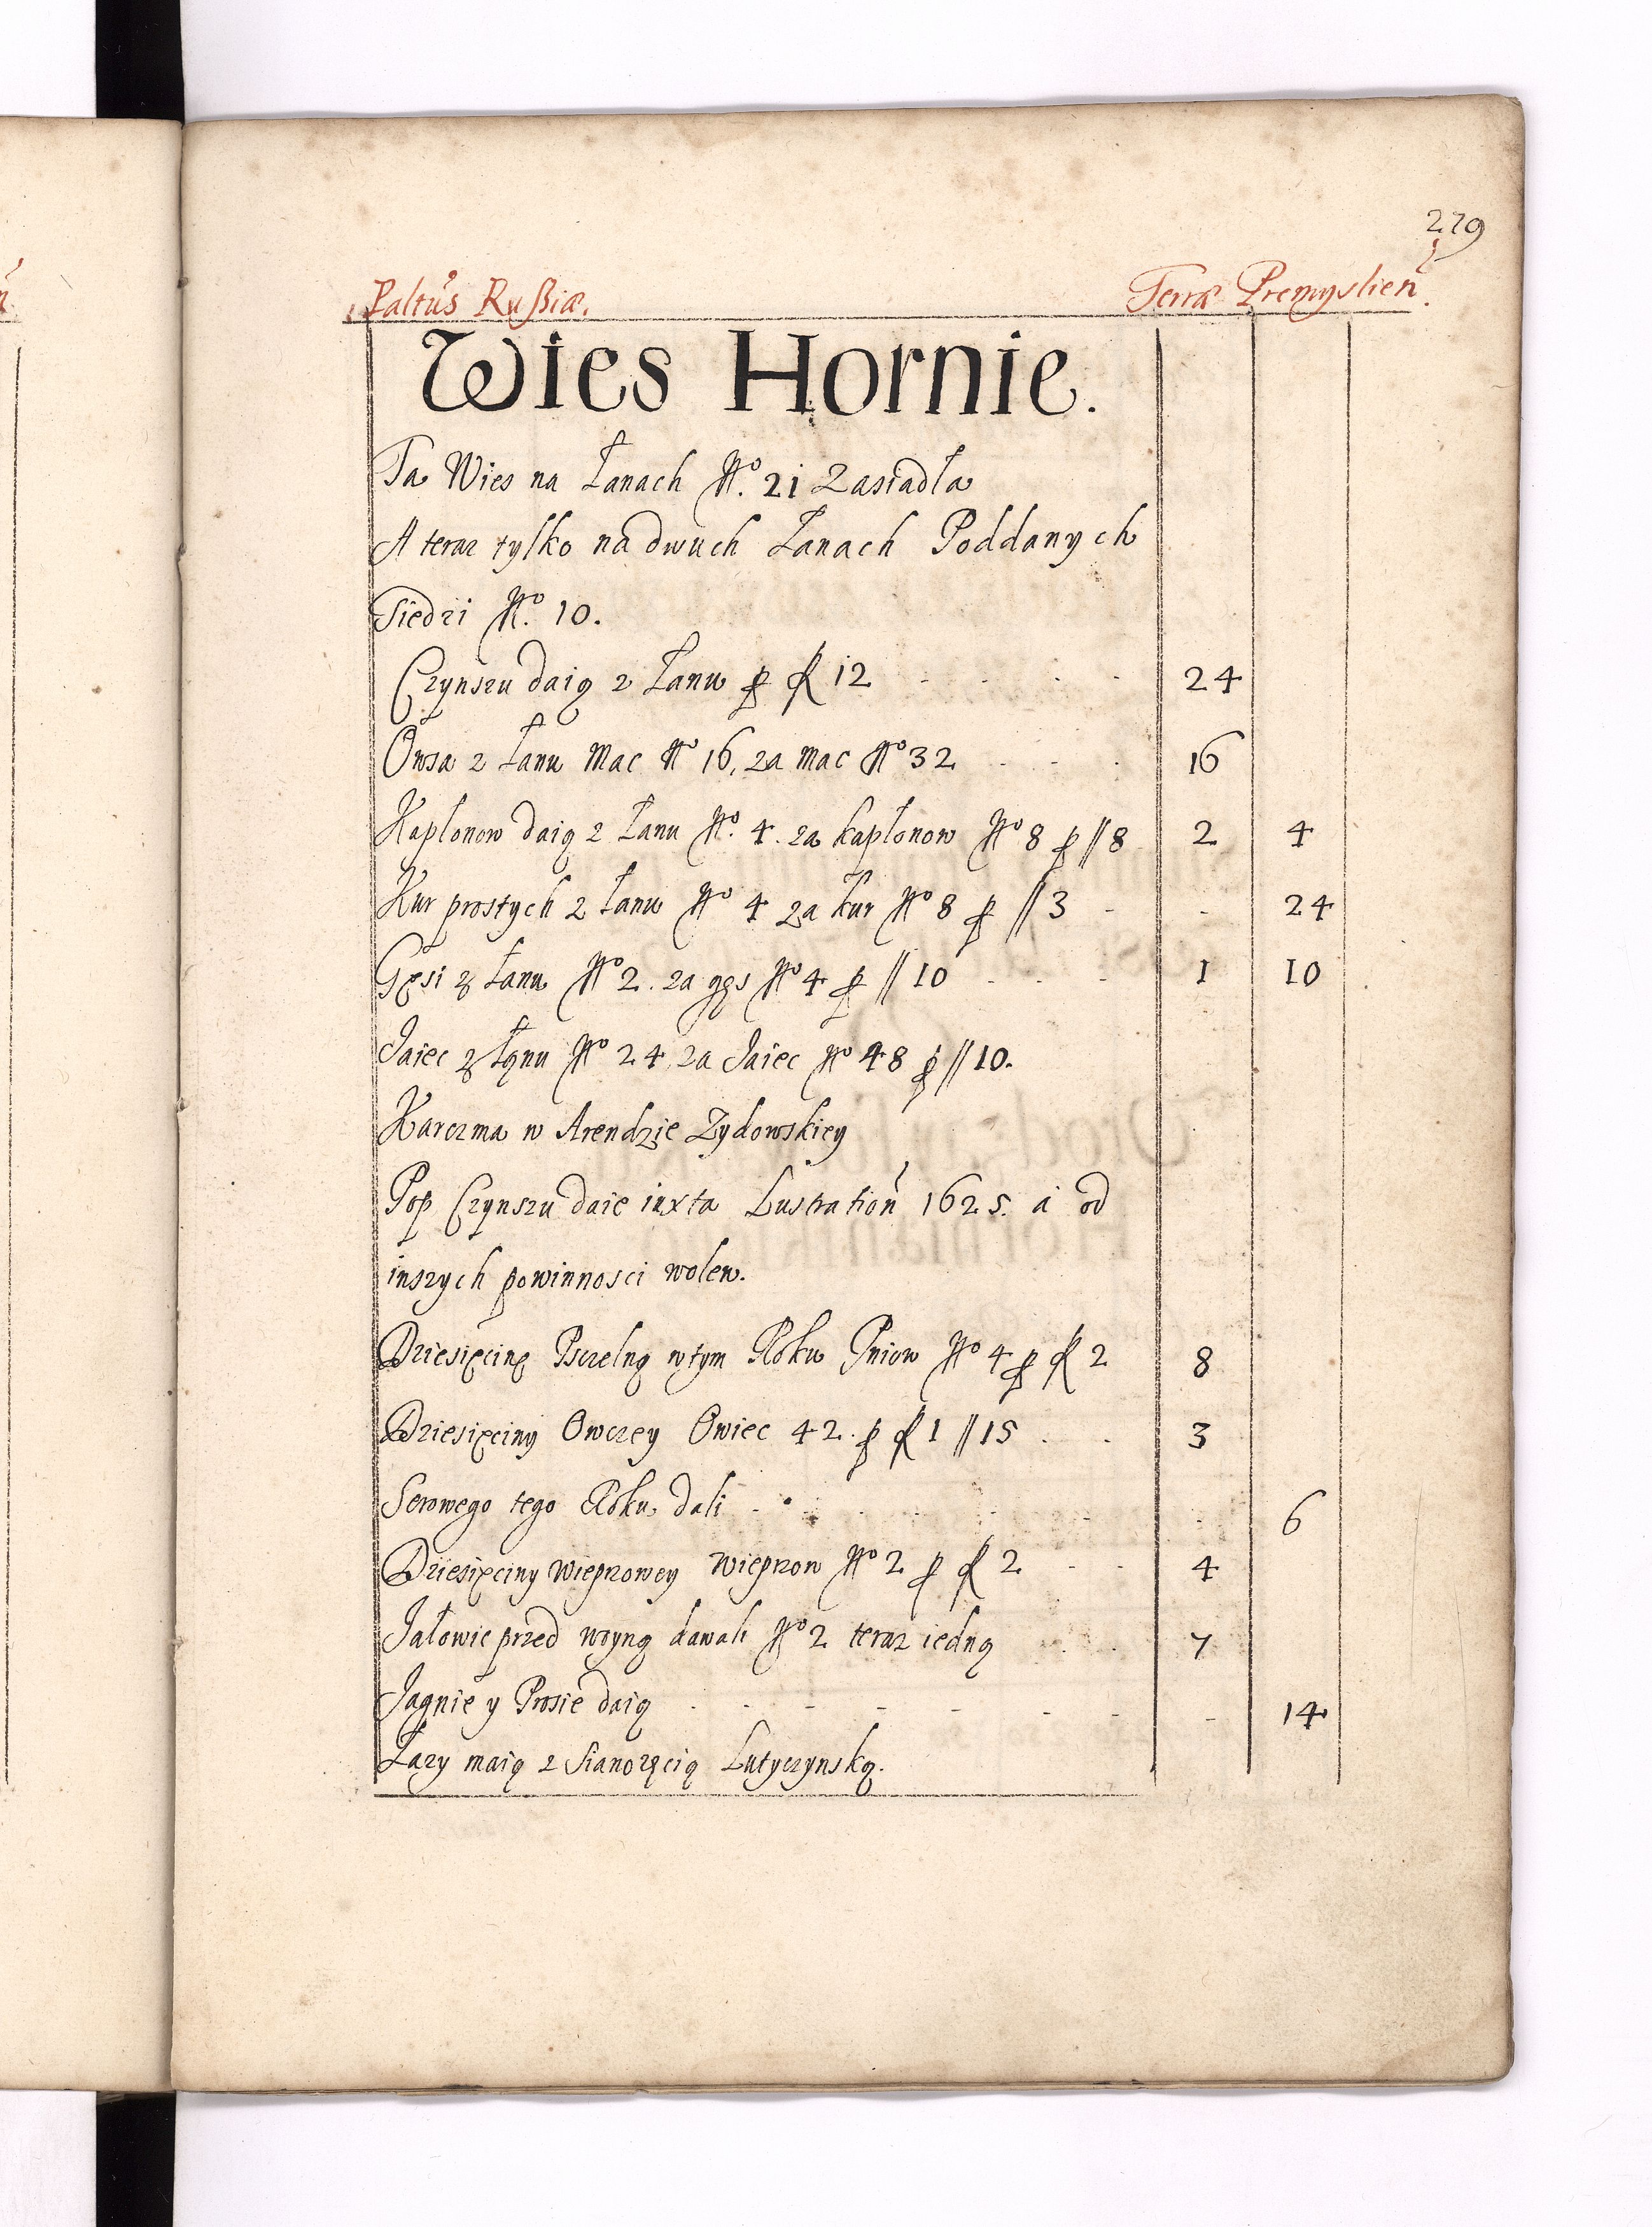 279
Paltús Rußiæ. Terræ Premyslien̄.
Wies Hornie.
Ta Wies na Łanach No. 21 Zasiadła
A teraz tylko na dwuch Łanach Poddanych
Siedzi No. 10.
Czynszu daią z Łanu p fl 12 . . . . 24
Owsa z Łanu Mac No 16, za Mac No 32 - - . 16
Kapłonow daią z Łanu No. 4. za kapłonow No 8 p // 8 2 4
Kur prostych z Łanu No 4 za kur No 8 p // 3 - - 24
Gęsi z Łanu No 2. za gęs No 4 p // 10 - - - 1 10
Jaiec z Łanu No 24, za Jaiec No 48 p // 10.
Karczma w Arendzie Zydowskiey
Pop Czynszu daie iuxta Lustration̄ 1625. á od
inszych powinnosci wolen.
Dziesięcinę Pszczelną w tym Roku Pniow No 4 p fl 2 8
Dziesięciny Owczey Owiec 42. p fl 1 // 15 . . 3
Serowego tego Roku dali - . . . . . 6
Dziesięciny wieprzowey wieprzow No 2 p fl 2 - - 4
Jałowic przed woyną dawali No 2 teraz iedną . . . 7
Jagnie y Prosie daią . - - - - - - - 14
Łazy maią z Sianożęcią Lutyczynską.